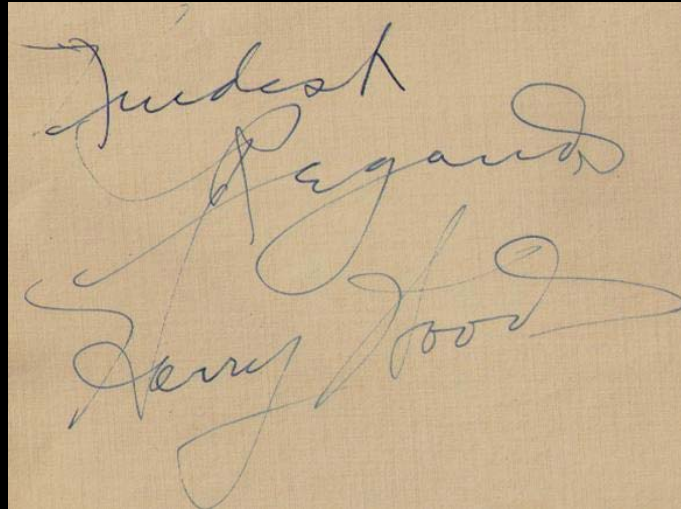 Kindest
Regards
Harry Wood